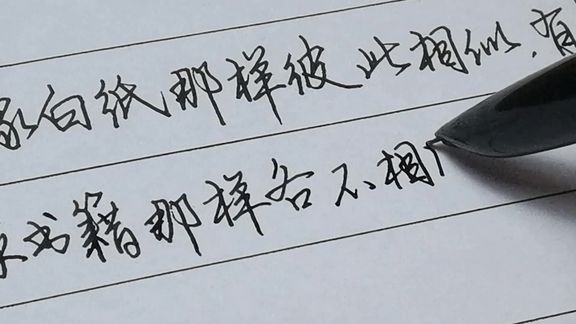 白纸那样彼此相似,有
书籍那样各不相